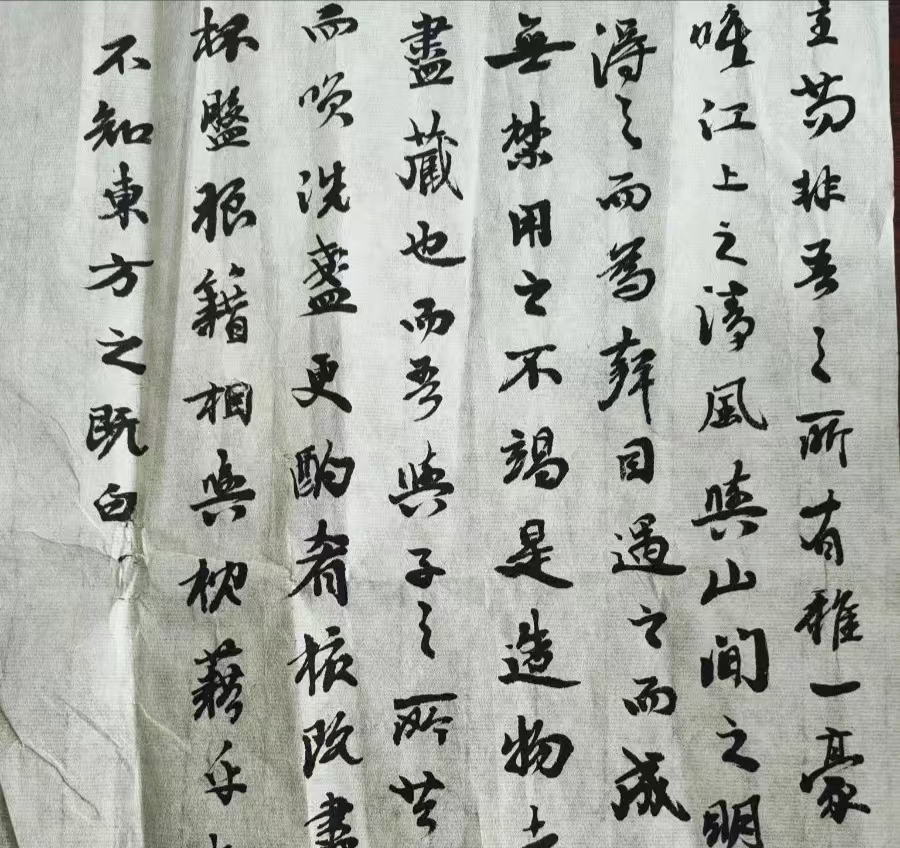 主苟非吾之所有雖一豪
唯江上之清風與山間之明
得之而為聲目遇之而成
無禁用之不竭是造物
盡藏也而吾與子之所共
而笑洗盞更酌肴核既盡
杯盤狼籍相與枕藉乎
不知東方之既白